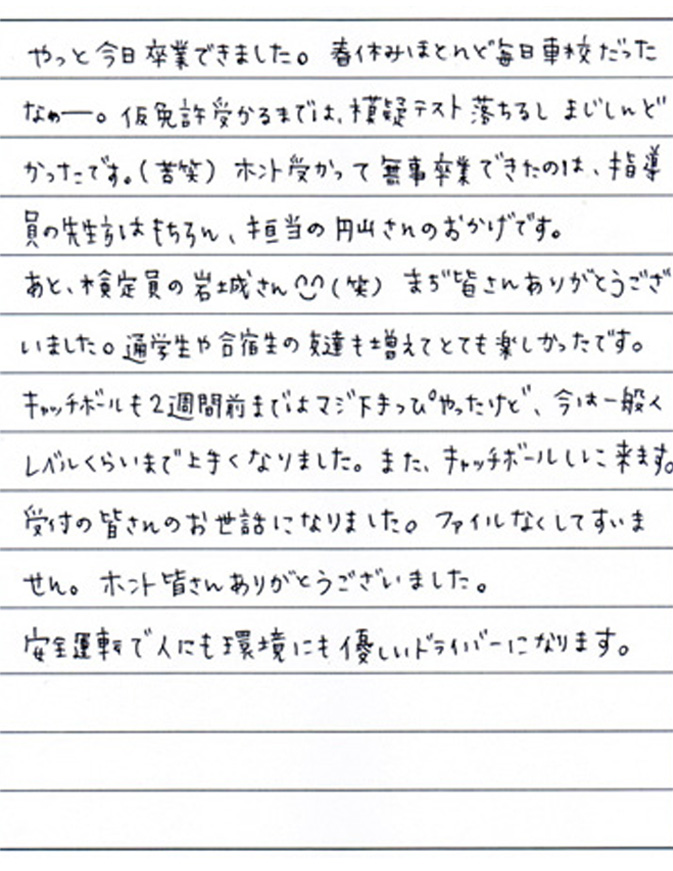 やっと今日卒業できました。春休みほとんど毎日車校だった
なぁー。仮免許受かるまでは、模疑テスト落ちるし まじしんど
かったです。(苦笑) ホント受かって無事卒業できたのは、指導
員の先生方はもちろん、担当の円山さんのおかげです。
あと、検定員の岩城さん(笑) まぢ皆さんありがとうござ
いました。通学生や合宿生の友達も増えてとても楽しかったです。
キャッチボールも2週間前まではマジ下手っぴやったけど、今は一般人
レベルくらいまで上手くなりました。また、キャッチボールしに来ます。
受付の皆さんのお世話になりました。ファイルなくしてすいま
せん。ホント皆さんありがとうございました。
安全運転で人にも環境にも優しいドライバーになります。